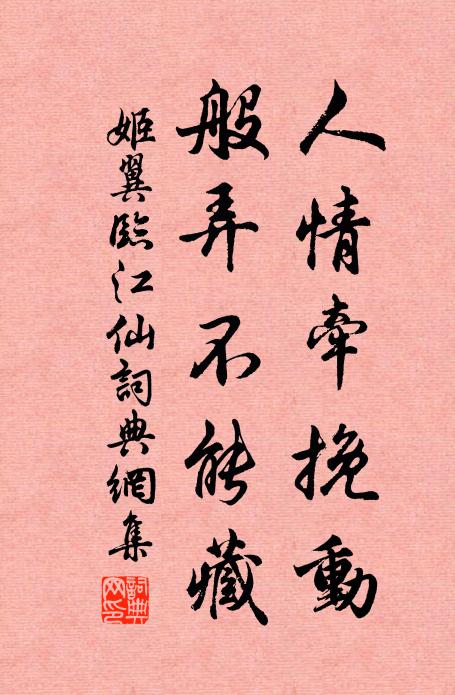 人情牽挽動
般弄不能藏
姬翼臨江仙詞典網集
詞典網印